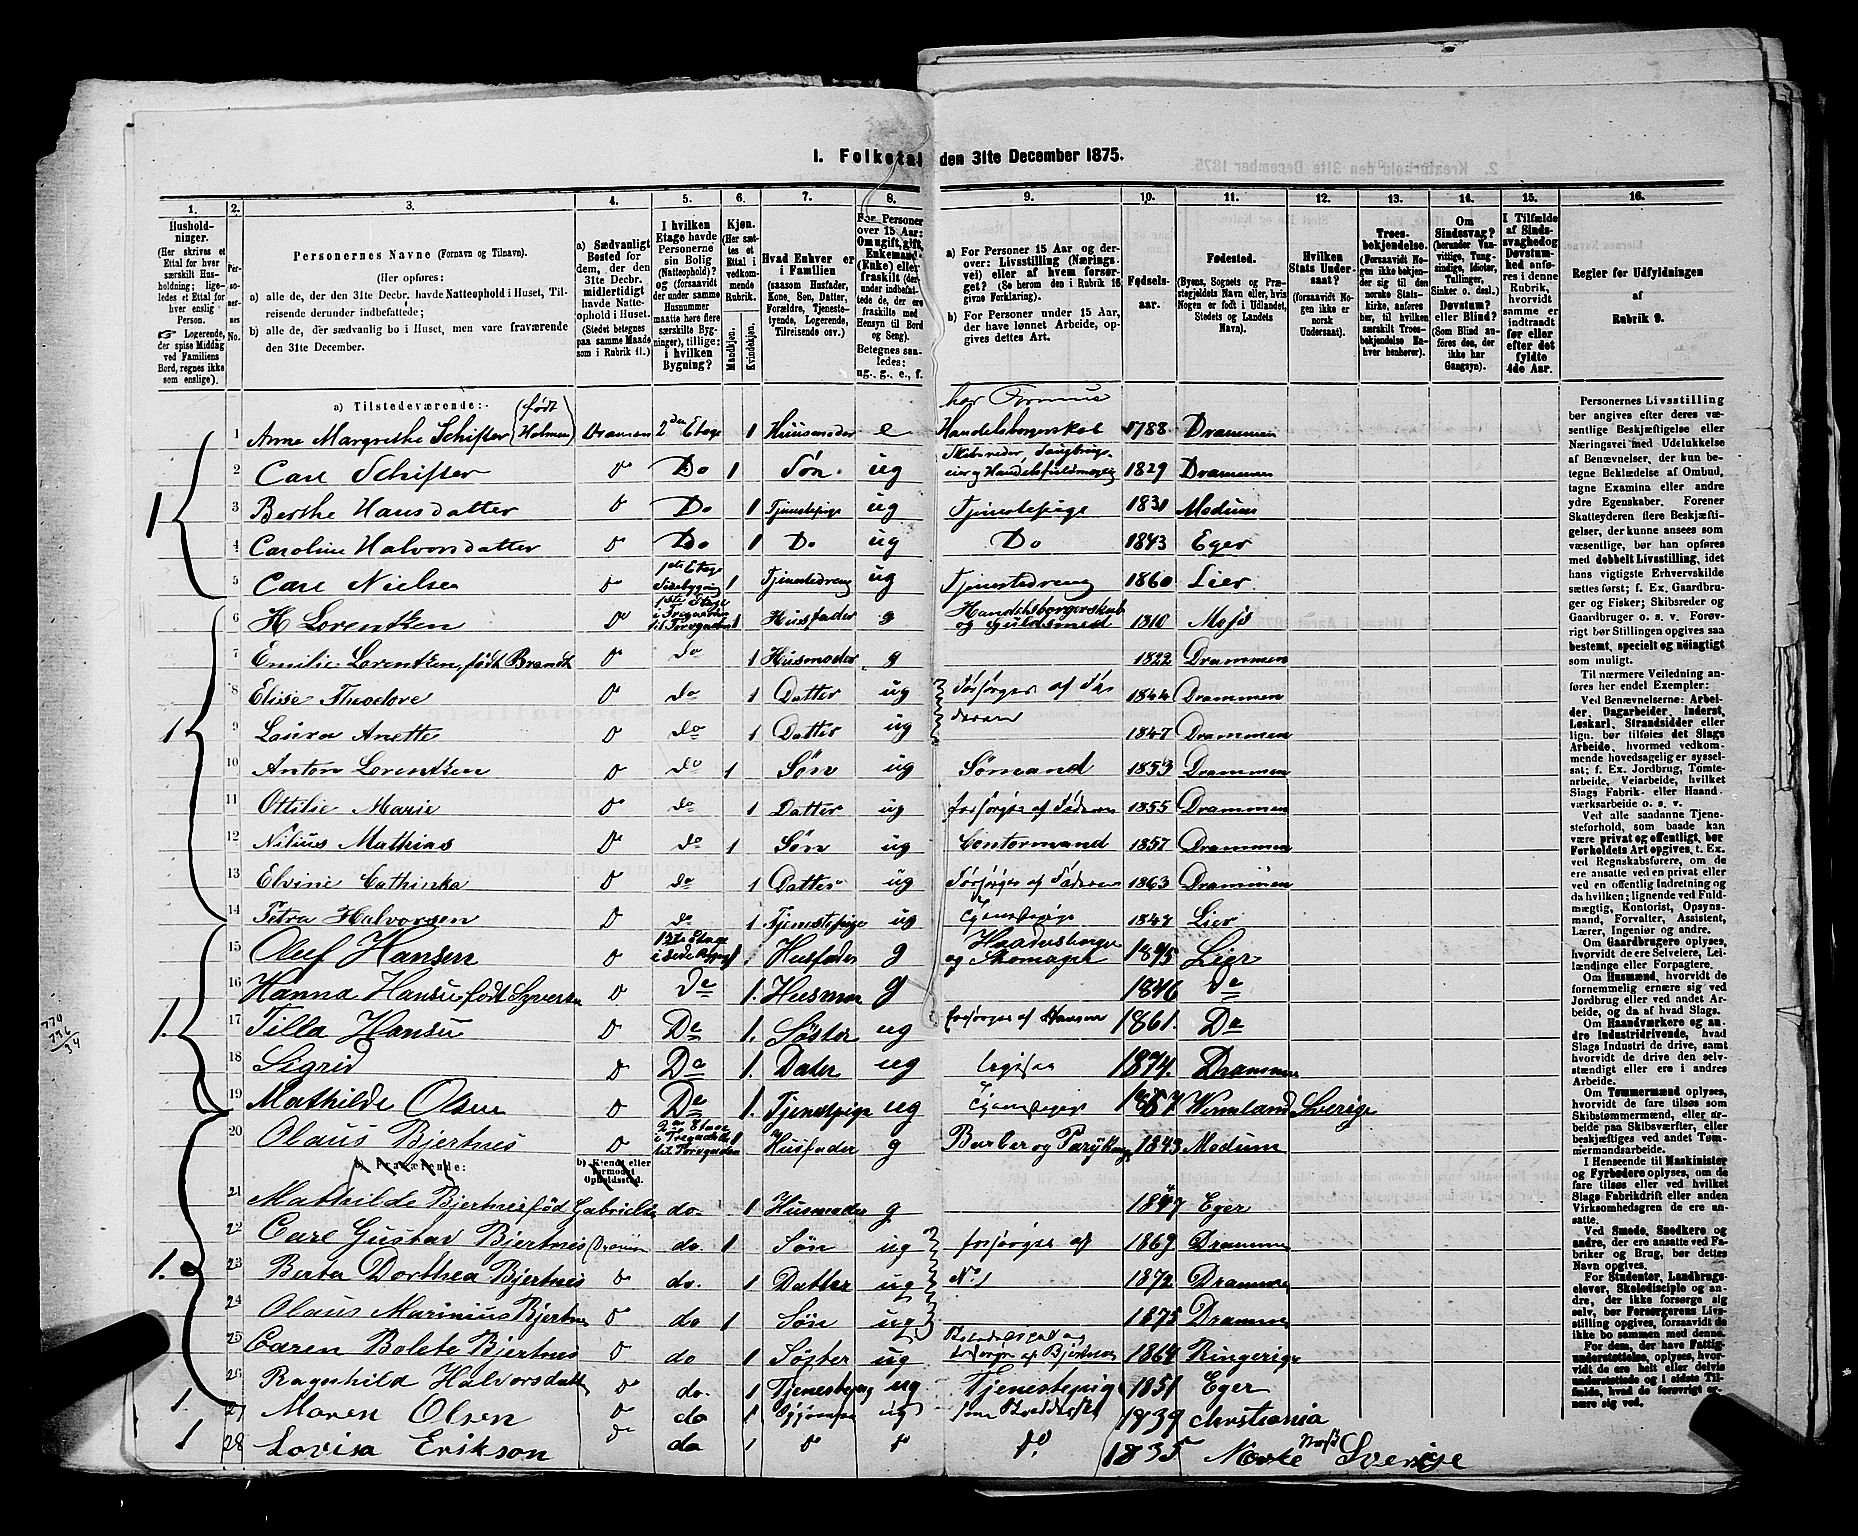 I. Folketal den 31te December 1875.
1. 2. 3. 4. 5. 6. 7. 8. 9. 10. 11. 12. 13. 14. 15. 16.
Husholdninger.
(Her skrives et Ettal for hver særskilt Husholdning; ligeledes et Ettal for hver enslig Person.
Logerende, der spise Middag ved Familiens Bord, regnes ikke som enslige).
Personernes No.
Personernes Navne (Fornavn og Tilnavn).
(Her opføres:
a) alle de, der den 31te Decbr. havde Natteophold i Huset, Tilreisende derunder indbefattede;
b) alle de, der sædvanlig bo i Huset, men vare fraværende den 31te December.
a) Sædvanligt Bosted for dem, der den 31te Decbr. havde midlertidigt Natteophold i Huset.
(Stedet betegnes paa samme Maade som i Rubrik 11.)
I hvilken Etage havde Personerne sin Bolig (Natteophold)? og (forsaavidt der under samme Husnummer maatte høre flere særskilte Bygninger), tillige: i hvilken Bygning?
Kjøn.
(Her sættes et Ettal i vedkommende Rubrik.
Mandkjøn.
Kvindekjøn.
Hvad Enhver er i Familien
(saasom Husfader, Kone, Søn, Datter, Forældre, Tjenestetyende, Logerende, Tilreisende osv.)
For Personer over 15 Aar: Om ugift, gift, Enkemand (Enke) eller fraskilt (derunder indbefattede de, der ere fraskilte med Hensyn til Bord og Seng).
Betegnes saaledes: ug., g., e., f.
a) For Personer 15 Aar og derover: Livsstilling (Næringsvei) eller af hvem forsørget? (Se herom den i Rubrik 16 givne Forklaring).
b) For Personer under 15 Aar, der have lønnet Arbeide, opgives dettes Art.
Fødselsaar.
Fødested.
(Byens, Sognets og Præstegjeldets Navn eller, hvis Nogen er født i Udlandet, Stedets og Landets Navn).
Hvilken Stats Undersaat?
(forsaavidt Nogen ikke er norsk Undersaat).
Troesbekjendelse.
(Forsaavidt Nogen ikke bekjender sig til den norske Statskirke, anføres her, til hvilken særskilt Troesbekjendelse Enhver henhører).
Om Sindssvag? (herunder Vanvittige, Tungsindige, Idioter, Tullinger, Sinker o. desl.) Døvstum? eller Blind?
(Som Blind anføres den, der ikke har Gangsyn).
I Tilfælde af Sindssvaghed og Døvstumhed anføres i denne Rubrik, hvorvidt samme er indtraadt før eller efter det fyldte 4de Aar.
Regler for Udfyldningen af Rubrik 9.
a) Tilstedeværende:
1 Anne Margrethe Schifter (født Holmen) Dramen 2den Etage 1 Huusmoder e har Formue Handelsborgerskab 1788 Drammen
2 Carl Schifter Do Do 1 Søn ug 1829 Drammen
3 Berthe Hansdatter Do 1 Tjenestepige ug Tjenestepige 1831 Modum
4 Caroline Halvorsdatter Do 1 Do ug Do 1843 Eger
5 Carl Nielsen 1ste Etage Sidebygning 1 Tjenestedreng ug Tjenestedreng 1860 Lier
6 H Lorentzen 1ste Etage i Tregaarden til Torvgaden 1 Husfader g Handelsborgerskab og Guldsmed 1810 Moss
7 Emilie Lorentzen, født Brandt do 1 Husmoder g 1822 Drammen
8 Elise Theodore do 1 Datter ug Forsørges af Faderen 1844 Drammen
9 Laura Anette do 1 Datter ug 1847 Drammen
10 Anton Lorentzen do 1 Søn ug Sømand 1853 Drammen
11 Ottilie Marie do 1 Datter ug forsørges af Faderen 1855 Drammen
12 Nilius Mathias do 1 Søn ug Contormand 1857 Drammen
13 Elvine Cathinka do 1 Datter ug Forsørges af Faderen 1863 Drammen
14 Petra Halvorsen do 1 Tjenestepige ug Tjenestepige 1847 Lier
15 Oluf Hansen 1ste Etage i Sidebygning 1 Husfader g og Skomager 1845 Lier
16 Hanna Hansen, født Syversen Do 1. Husmor g 1846 Do
17 Tilla Hansen Do 1. Søster ug forsørges af Hansen 1861. Do
18 Sigrid Do 1. Dater ug 1874. Drammen
19 Mathilde Olsen Do 1. Tjenestepige ug 1857 Vermland Sverige
20 Olaus Bjertnes 2den Etage i Tregaarden til Torvgaden 1 Husfader g Barber og 1843 Modum
b) Fraværende: b) Kjendt eller formodet Opholdssted.
21 Mathilde Bjertnes fød Gabrielsen do. 1 Husmoder g 1847 Eger
22 Carl Gustav Bjertnes Dramen do. 1 Søn ug forsørges af 1869 Drammen
23 Berta Dorthea Bjertnes do. 1 Datter ug No 1 1872 Drammen
24 Olaus Marinius Bjertnes do 1 Søn ug 1875 Drammen
25 Caren Bolete Bjertnes do 1 Søster ug forsørges af Bjertnes 1864 Ringerige
26 Ragnhild Halvorsdatter do. 1 Tjenestepige ug Tjenestepige 1851 Eger
27 Maren Olsen do 1 ug 1839 Christiania
28 Lovisa Erikson do 1 Do 1835 Sverige
Personernes Livsstilling bør angives efter deres væsentlige Beskjæftigelse eller Næringsvei med Udelukkelse af Benævnelser, der kun betegne Beklædelse af Ombud, tagne Examina eller andre ydre Egenskaber. Forener Skatteyderen flere Beskjæftigelser, der kunne ansees som væsentlige, bør han opføres med dobbelt Livsstilling, idet hans vigtigste Erhvervskilde sættes først; f. Ex. Gaardbruger og Fisker; Skibsreder og Gaardbruger o. s. v. Forøvrigt bør Stillingen opgives saa bestemt, specielt og nøiagtigt som muligt.
Til nærmere Veiledning anføres her endel Exempler:
Ved Benævnelserne: Arbeider, Dagarbeider, Inderst, Løskarl, Strandsidder eller lign. bør tilføies det Slags Arbeide, hvormed vedkommende hovedsagelig er sysselsat; f. Ex. Jordbrug, Tømtearbeide, Veiarbeide, hvilket Slags Fabrik- eller Haandværksarbeide o. s. v.
Ved alle saadanne Tjenesteforhold, som baade kan være privat og offentligt, bør Forholdets Art opgives, t. Ex. ved Regnskabsførere, om de ere ansatte ved en privat eller ved en offentlig Indretning og da hvilken; lignende ved Fuldmægtig, Kontorist, Opsynsmand, Forvalter, Assistent, Lærer, Ingeniør og andre.
Om Gaardbrugere oplyses, hvorvidt de ere Selveiere, Leilændinge eller Forpagtere.
Om Husmænd, hvorvidt de fornemmelig ernære sig ved Jordbrug eller ved andet Arbeide, og da af hvad Slags.
Om Haandværkere og andre Industridrivende, hvad Slags Industri de drive, samt hvorvidt de drive den selvstændigt eller ere i andres Arbeide.
Om Tømmermænd oplyses, hvorvidt de fare tilsøs som Skibstømmermænd, eller arbeide paa Skibsværfter, eller beskjæftiges ved andet Tømmermandsarbeide.
I Henseende til Maskinister og Fyrbødere oplyses, om de fare tilsøs eller ved hvilket Slags Fabrikdrift eller anden Virksomhedsgren de ere ansatte.
Ved Smede, Snedkere og andre, der ere ansatte ved Fabriker og Brug, bør dettes Navn opgives.
For Studenter, Landbrugselever, Skoledisciple og andre, der ikke forsørge sig selv, bør Forsørgerens Livsstilling opgives, forsaavidt de ikke bo sammen med denne.
For dem, der have Fattigunderstøttelse, oplyses, hvorvidt de ere helt eller delvis understøttede og i sidste Tilfælde, hvad de forøvrigt ernære sig ved.